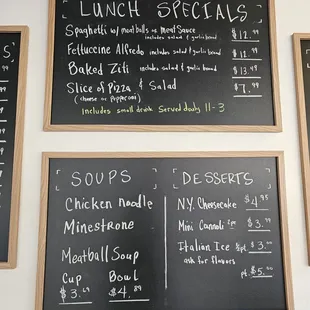 LUNCH SPECIALS
Spaghetti w/ meatballs or Meat Sauce $12.99
includes salad & garlic bread
Fettuccine Alfredo includes salad & garlic bread $12.99
Baked Ziti includes salad & garlic bread $13.99
Slice of Pizza & Salad $7.99
(cheese or pepperoni)
Includes small drink Served daily 11-3
SOUPS
Chicken Noodle
Minestrone
Meatball Soup
Cup Bowl
$3.69 $4.89
DESSERTS
N.Y. Cheesecake $4.95
Mini Cannoli 2pc $3.99
Italian Ice ½pt. $3.00
ask for flavors
pt. $5.00